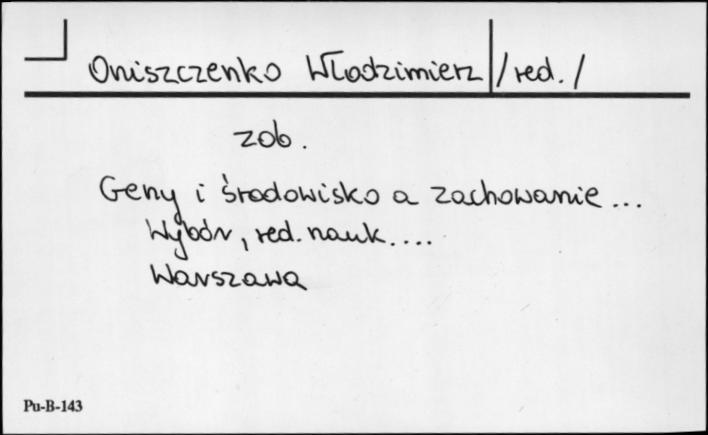 Oniszczenko Włodzimierz /red./
zob.
Geny i środowisko a zachowanie ...
Wybór, red. nauk. ...
Warszawa
Pu-B-143